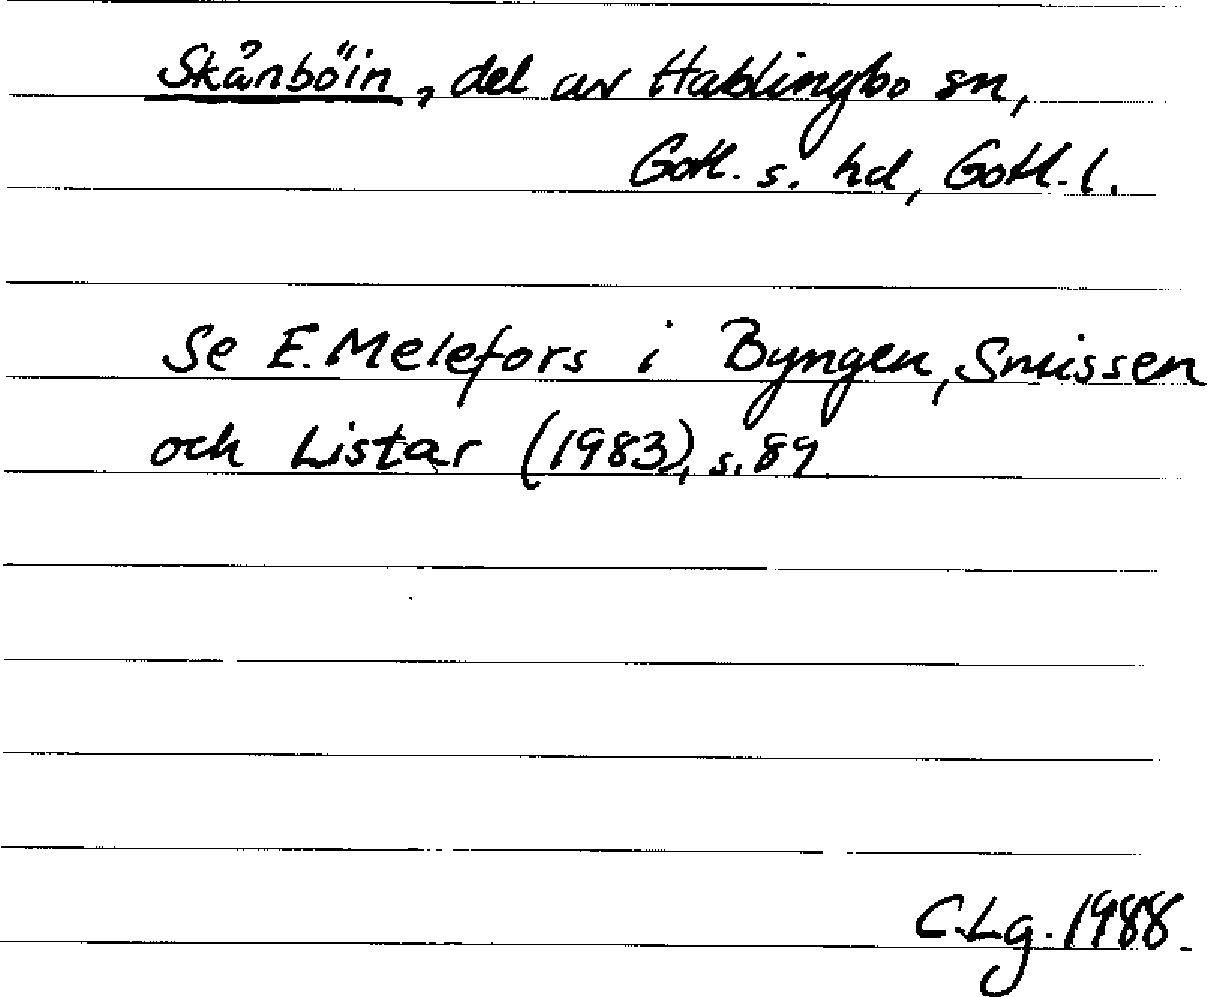 Skånböin, del av Hablingbo sn,
Gotl. s. hd, Gotl. l.
Se E. Melefors i Byngen, Smissen
och Listar (1983), s. 89
C.Lg. 1988.